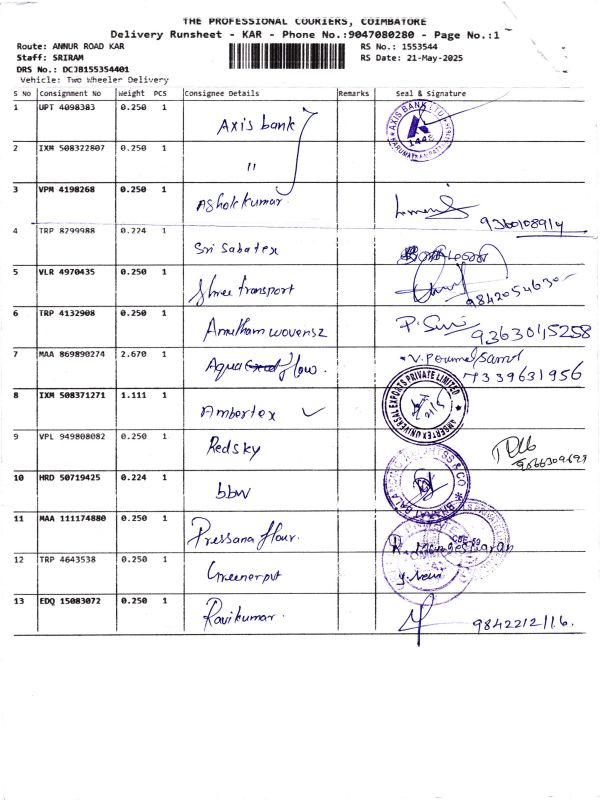 THE PROFESSIONAL COURIERS, COIMBATORE
Delivery Runsheet - KAR - Phone No.:9047080280 - Page No.:1
Route: ANNUR ROAD KAR RS No.: 1553544
Staff: SRIRAM RS Date: 21-May-2025
DRS No.: DCJB155354401
Vehicle: Two Wheeler Delivery
S No Consignment No Weight PCS Consignee Details Remarks Seal & Signature
1 UPT 4098383 0.250 1 Axis bank AXIS BANK LTD 1448
2 IXM 508322807 0.250 1 "
3 VPM 4198268 0.250 1 Ashok kumar 9360108914
4 TRP 8299988 0.224 1 Sri Sabatex
5 VLR 4970435 0.250 1 Shree transport 9842054630
6 TRP 4132908 0.250 1 Amutham wovensz 9363015258
7 MAA 869890274 2.670 1 Aqua flow. 7339631956
8 IXM 508371271 1.111 1 Ambertex AMBERTEX UNIVERSAL EXPORTS PRIVATE LIMITED
9 VPL 949808082 0.250 1 Redsky
10 HRD 50719425 0.224 1 bbw
11 MAA 111174880 0.250 1 Pressana flour.
12 TRP 4643538 0.250 1 Greenerput
13 EDQ 15083072 0.250 1 Ravikumar. 9842212116.